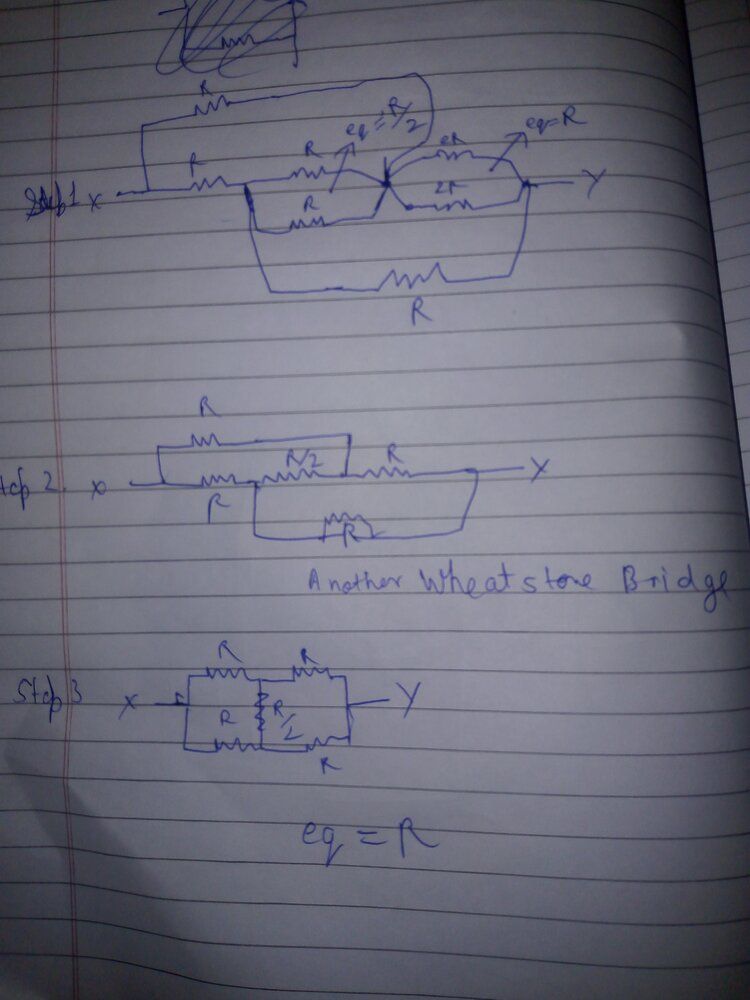 R
eq = R/2
eq = R
R
R
2R
2R
Step 1 X
Y
R
R
R
R/2
R
Step 2. X
Y
R
R
Another Wheatstone Bridge
R
R
Step 3 X
Y
R
R/2
R
eq = R